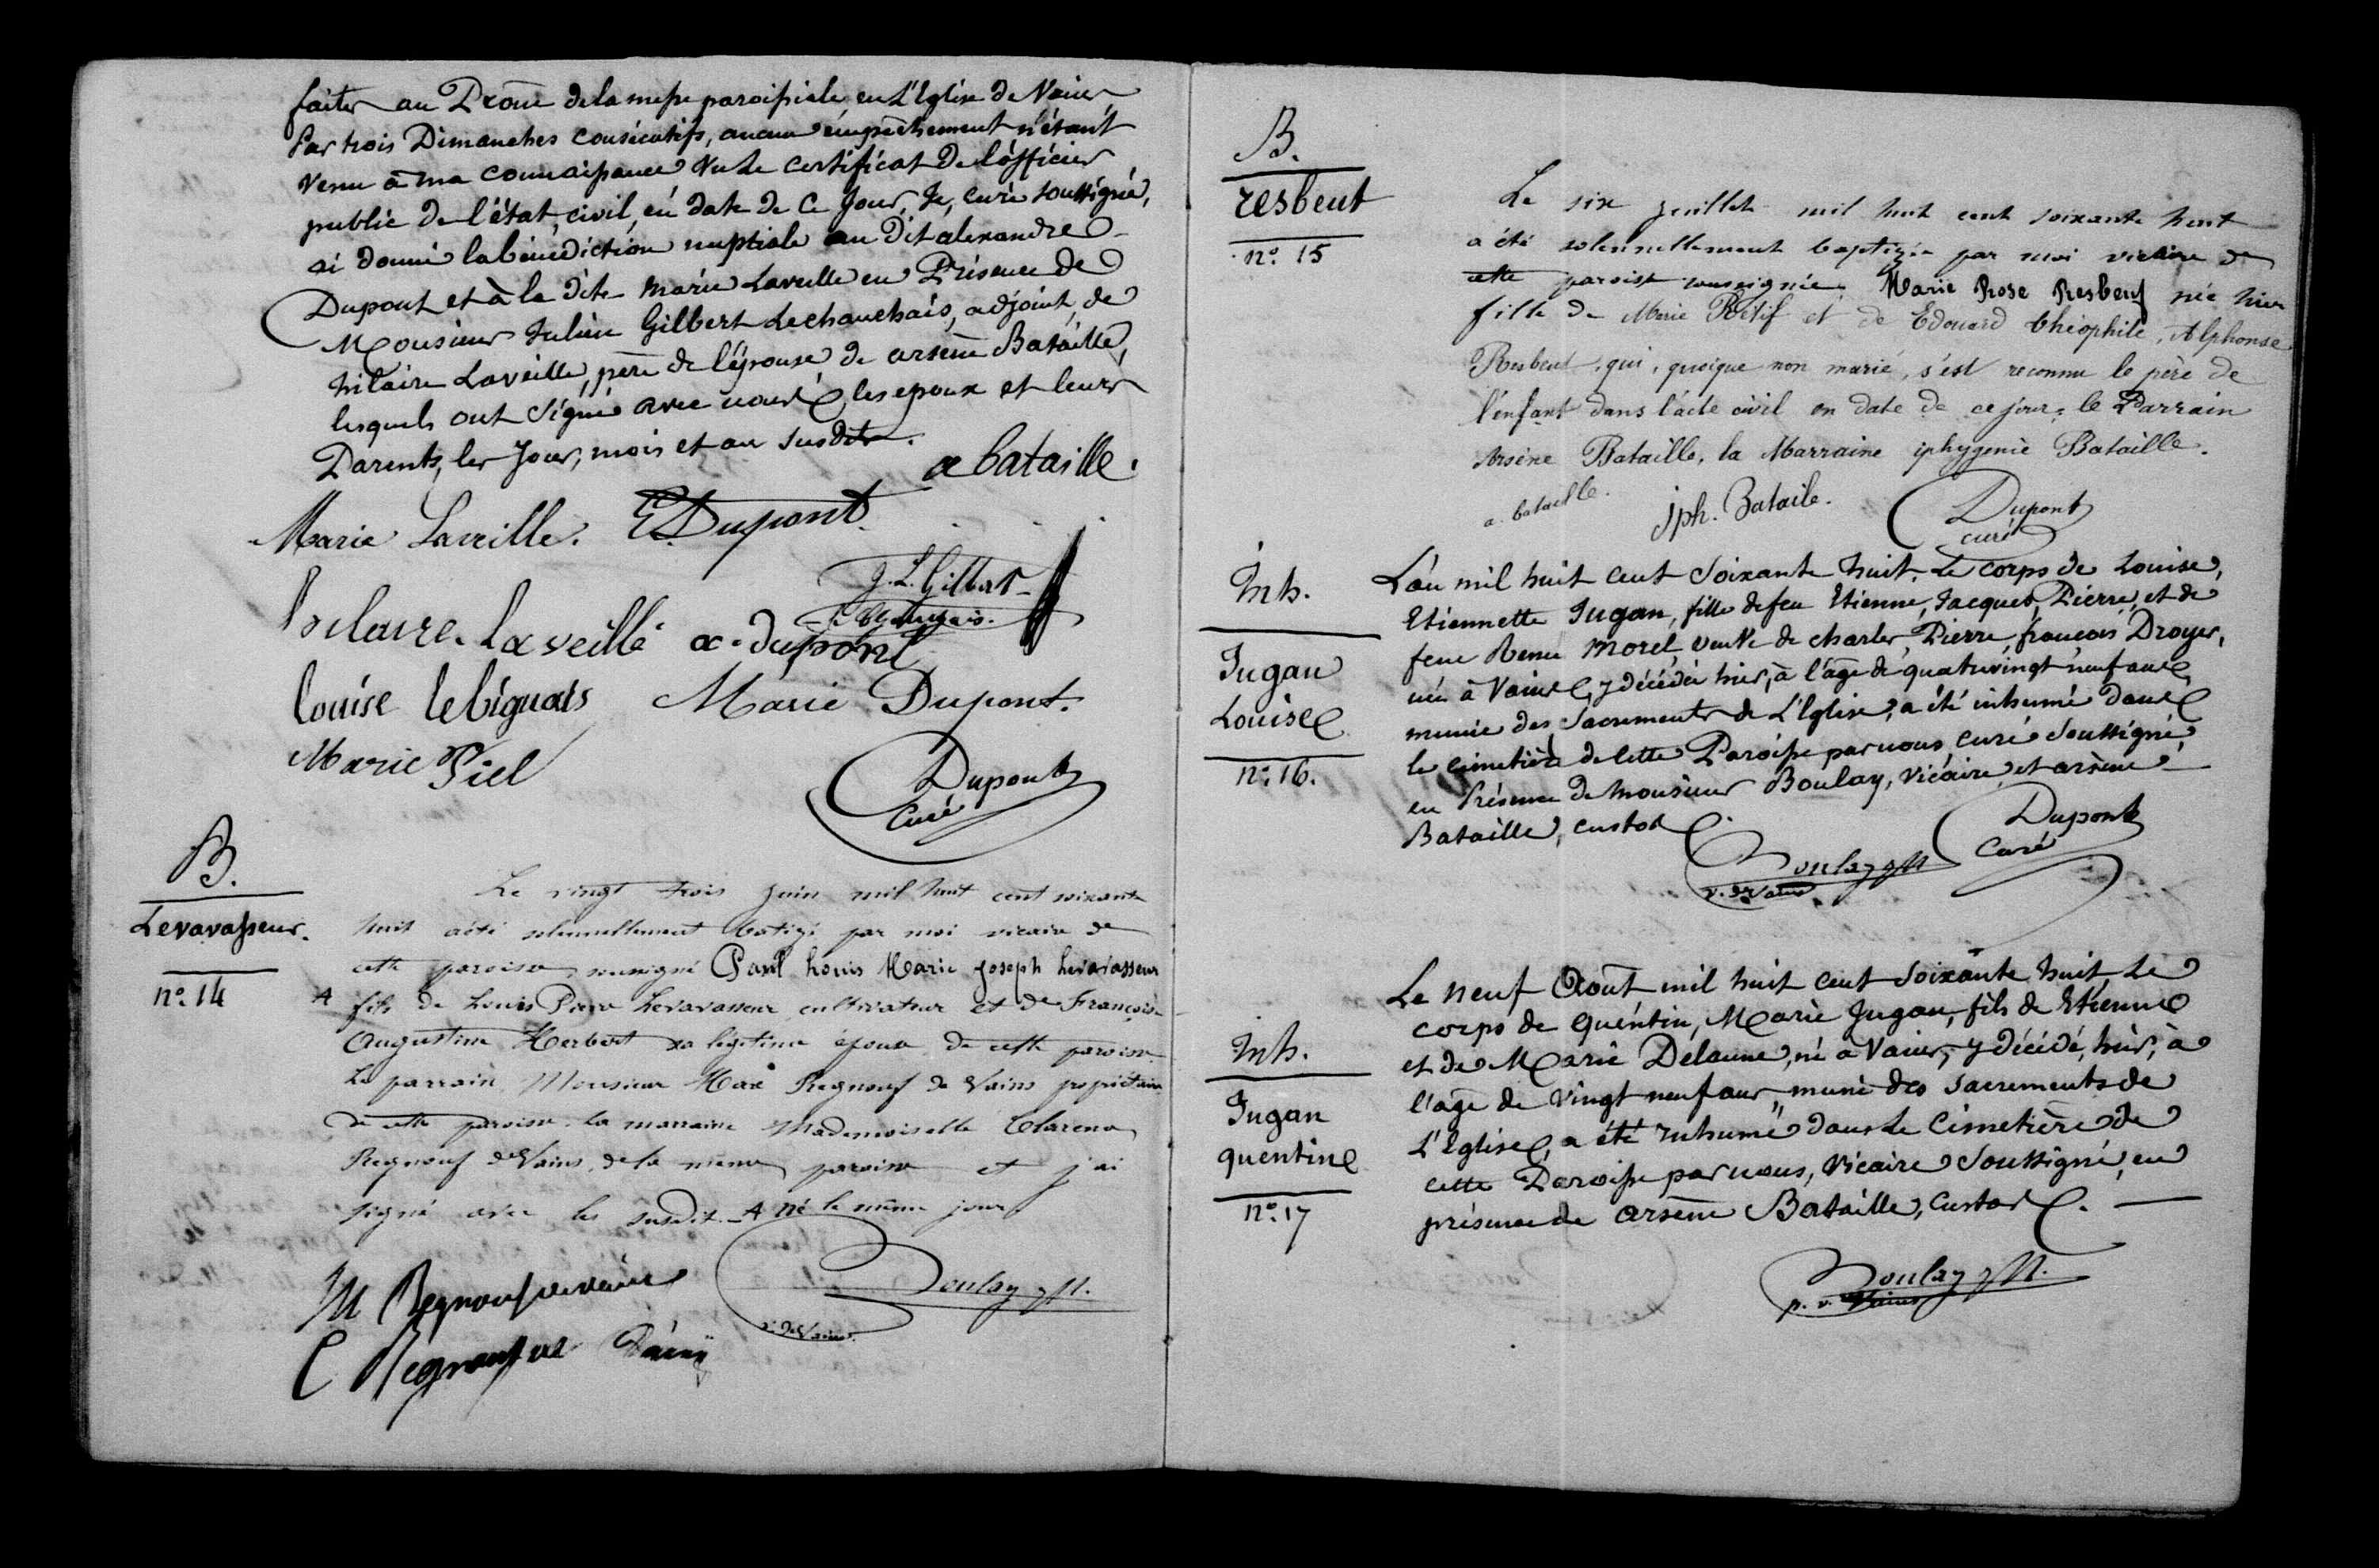 faites au Prône de la messe paroissiale en L'Eglise de Vains
Par trois Dimanches consécutifs, aucun empêchement n'étant
venu à ma connaissance Vu Le certificat de l'officier
public de l'état civil, en date de ce Jour, Je, curé soussigné,
ai donné la bénédiction nuptiale au Dit alexandre
Dupont et à la dite Marie Laveille en Présence de
Monsieur Julien Gilbert Lechauchais, adjoint, de
hilaire Laveille, père de l'épouse, de arsène Bataille,
lesquels ont signé avec nous, les epoux et leurs
Parents, les Jour, mois et an susdits.
a bataille.
Marie Laveille. E. Dupont
J. L. Gilbert
hilaire. laveille a. dupont
louise lebiguais Marie Dupont.
Marie Piel
Dupont
Curé
B.
Levavasseur.
nº. 14
Le vingt trois juin mil huit cent soixante
huit a été solennellement batizé par moi vicaire de
cette paroisse soussigné Paul Louis Marie Joseph Levavasseur
A fils de Louis Pierre Levavasseur cultivateur et de Françoise
Augustine Herbert sa légitime épouse de cette paroisse
Le parrain Monsieur Max Regnouf de Vains propriétaire
de cette paroisse. la marraine Mademoiselle Clarena
Regnouf de Vains, de la même paroisse et j'ai
signé avec les susdit. A né le même jour
M Regnouf de vains
Boulay
v. de Vains.
C Regnouf de Vains
B.
resbeut
nº. 15
Le six juillet mil huit cent soixante huit
a été solennellement baptizée par moi vicaire de
cette paroisse soussignée Marie Rose Resbeut née hier
fille de Marie Petif et de Edouard théophile, Alphonse
Resbeut, qui, quoique non marié, s'est reconnu le père de
l'enfant dans l'acte civil en date de ce jour. le Parrain
Arsène Bataille, la Marraine iphygenie Bataille.
a. bataille. iph. Bataile. Dupont
curé
Inh.
Jugan
Louise
nº. 16.
L'an mil huit cent soixante huit. Le corps de Louise,
Etiennette Jugan, fille de feu Etienne, Jacques, Pierre, et de
feue Renée Morel, veuve de charles, Pierre, françois Droyer,
née à Vains, y décédée hier, à l'âge de quatrevingt neuf ans,
munie des Sacrements de L'Eglise, a été inhumé dans
le cimetière de cette Paroisse par nous, curé soussigné,
en Présence de Monsieur Boulay, Vicaire, et arsène
Bataille, custos.
Dupont
Curé
Boulay
v. de Vains
Inh.
Jugan
quentin
nº. 17
Le neuf Août mil huit cent soixante huit, Le
corps de Quentin, Marie Jugan, fils de Etienne
et de Marie Delaune, né à Vains, y décédé, hier, à
l'âge de vingt neuf ans, muni des sacrements de
L'Eglise, a été inhumé dans Le Cimetière de
cette Paroisse par nous, Vicaire soussigné, en
présence de arsène Bataille, custos.
Boulay
p. v. Vains